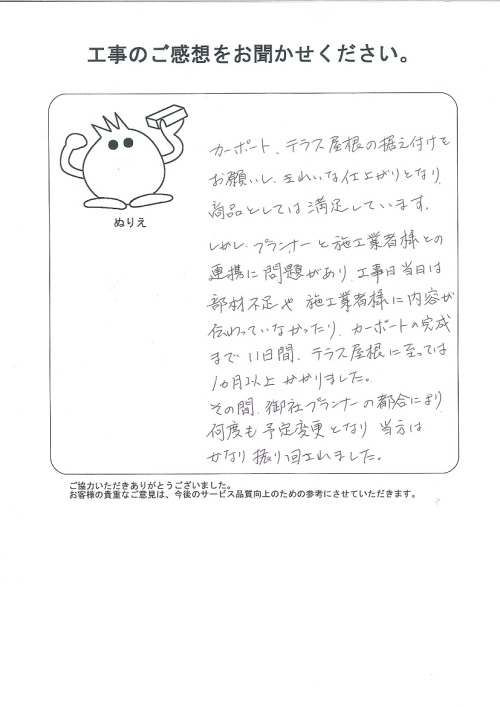 工事のご感想をお聞かせください。
ぬりえ
カーポート、テラス屋根の据え付けを
お願いし、きれいな仕上がりとなり、
商品としては満足しています。
しかし、プランナーと施工業者様との
連携に問題があり、工事日当日は
部材不足や施工業者様に内容が
伝わっていなかったり、カーポートの完成
まで11日間、テラス屋根に至っては
1ヵ月以上かかりました。
その間、御社プランナーの都合により、
何度も予定変更となり当方は
かなり振り回されました。
ご協力いただきありがとうございました。
お客様の貴重なご意見は、今後のサービス品質向上のための参考にさせていただきます。